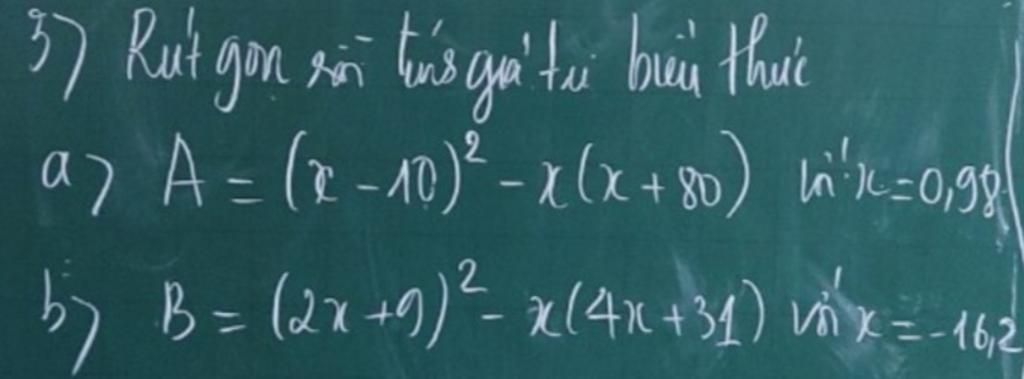 3) Rút gọn rồi tính giá trị biểu thức
a) A = (x - 10)² - x(x + 80) với x = 0,98
b) B = (2x + 9)² - x(4x + 31) với x = -16,2